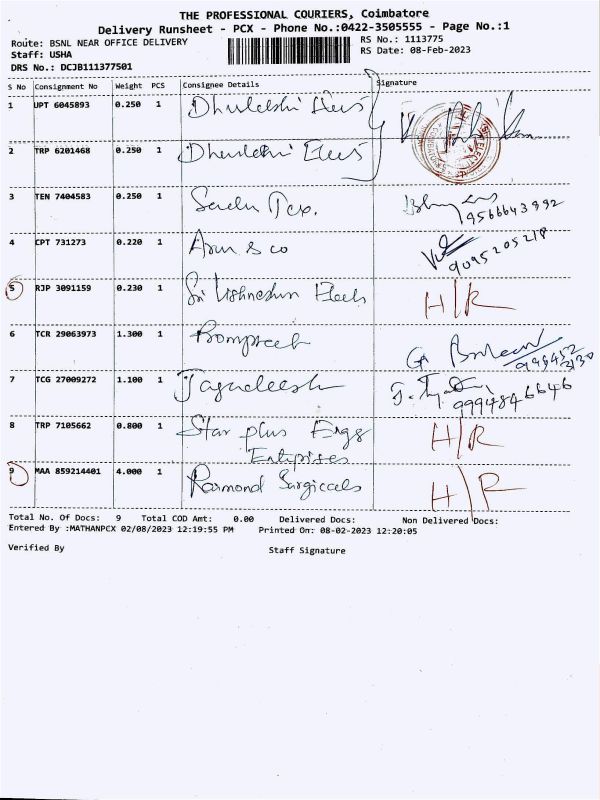 THE PROFESSIONAL COURIERS, Coimbatore
Delivery Runsheet - PCX - Phone No.:0422-3505555 - Page No.:1
Route: BSNL NEAR OFFICE DELIVERY RS No.: 1113775
Staff: USHA RS Date: 08-Feb-2023
DRS No.: DCJB111377501
S No Consignment No Weight PCS Consignee Details Signature
1 UPT 6045893 0.250 1
2 TRP 6201468 0.250 1
3 TEN 7404583 0.250 1 9566643992
4 CPT 731273 0.220 1 Arun & co 9095205218
5 RJP 3091159 0.230 1 Sri H/R
6 TCR 29063973 1.300 1
7 TCG 27009272 1.100 1 Jagadeesh 9994846646
8 TRP 7105662 0.800 1 Star plus Engg H/R
Entiprises
9 MAA 859214401 4.000 1 Raimond Surgicals H/R
Total No. Of Docs: 9 Total COD Amt: 0.00 Delivered Docs: Non Delivered Docs:
Entered By :MATHANPCX 02/08/2023 12:19:55 PM Printed On: 08-02-2023 12:20:05
Verified By Staff Signature